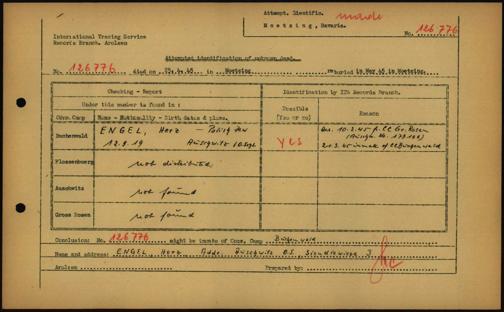 Attempt. Identific.
Moetzing, Bavaria.
No. 126776
International Tracing Service
Records Branch. Arolsen
Attempted identification of unknown dead.
No. 126776 died on 25.4.45 in Moetzing reburied in May 45 in Moetzing.
Checking - Report
Identification by ITS Records Branch.
Under this number is found in:
Possible
(Yes or no)
Reason
Conc. Camp
Name - Nationality - Birth date & place.
Buchenwald
ENGEL, Herz - Polish Jew
12.9.19 Auschwitz
YES
10.2.45 CC Gr. Rosen
Flossenburg
not distributed
Auschwitz
not found
Gross Rosen
not found
Conclusion: No. 126776 might be inmate of Conc. Camp
Name and address: ENGEL, Herz Auschwitz O.S.
Arolsen
Prepared by: